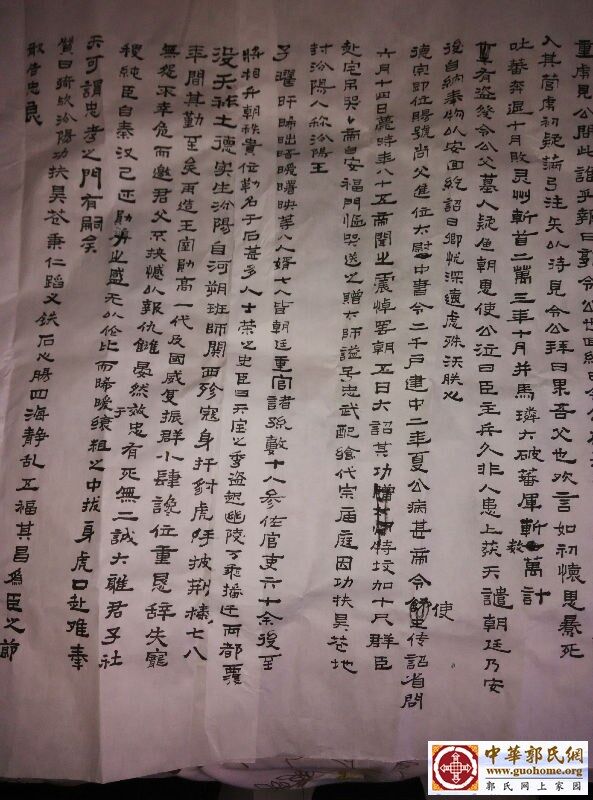 重虏見公問此誰乎報曰郭令公也回紇曰令公
入其营虏初疑騎弓注矢以待見令公拜曰果吾父也欢言如初懷恩暴死
吐蕃奔退十月敗灵州斬首二萬三年十月并馬璘大破蕃厙斬數萬計
有盗發令公父墓人疑魚朝恩使公泣曰臣主兵久非人患上获天譴朝廷乃安
後自納奉物以安回紇詔曰卿忧深遠虑殊沃朕心
德宗即位賜號尚父進位太尉中書令二千户建中二年夏公病甚帝令使传詔省問
六月十四日薨時年八十五帝聞之震悼罢朝五日大詔其功特坟加十尺群臣
赴宅吊哭帝自安福門慟哭送之贈太師謚号忠武配飨代宗庙庭因功扶昊苍地
封汾陽人称汾陽王
子曜旰晞昢晤曖曙映等八人婿七人皆朝廷重官諸孫數十人参佐官吏六十余後至
將相升朝秩貴位勒名于石甚多人士荣之史臣曰天宝之季盗起幽陵万乘播迁两都覆
没天祚土德实生汾陽自河朔班師関西殄寇身扞豺虎手披荆榛七八
年間其勤至矣再造王室勛高一代及國威复振群小肆讒位重恳辞失寵
無怨不幸危而邀君父不挟憾以报仇雠晏然效忠有死無二誠大雅君子社
稷純臣自秦汉已还勛力之盛无以伦比而晞曖于缞粗之中拔身虎口赴难奉
天可謂忠孝之門有嗣矣
贊曰猗欤汾陽功扶昊苍秉仁蹈义铁石心腸四海静乱五福其昌為臣之節
敢告忠良
中華郭氏網
www.guohome.org
郭氏网上家园